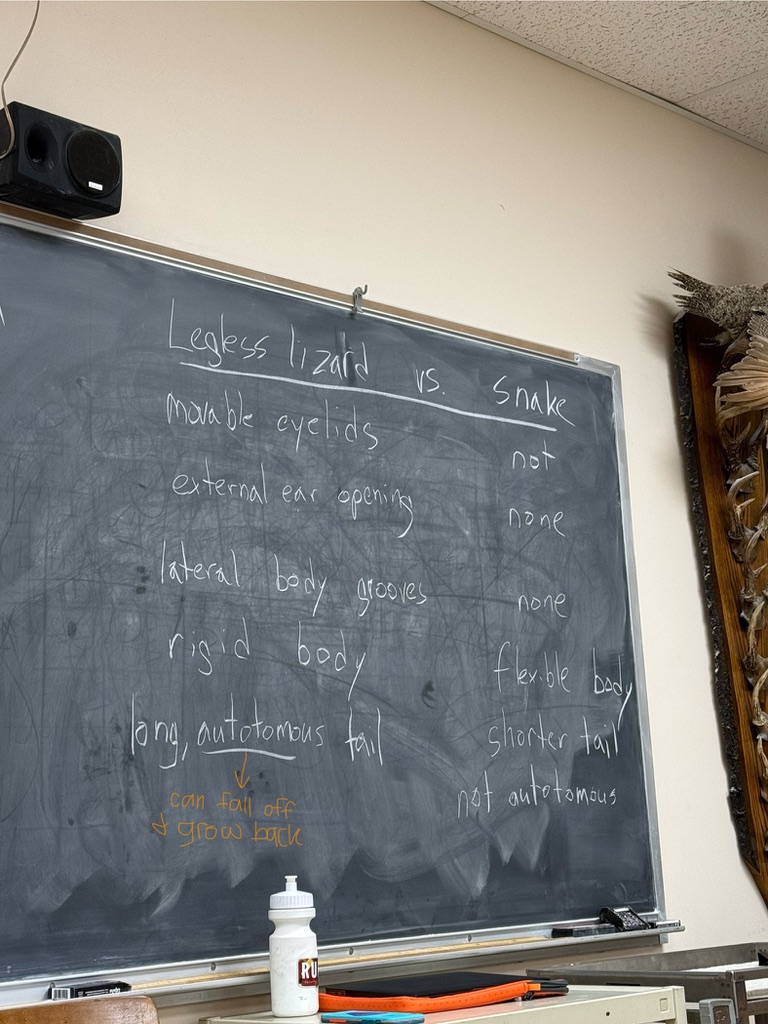 Legless lizard vs. Snake
movable eyelids not
external ear opening none
lateral body grooves none
rigid body flexible body
long, autotomous tail shorter tail
not autotomous
can fall off
& grow back
RU